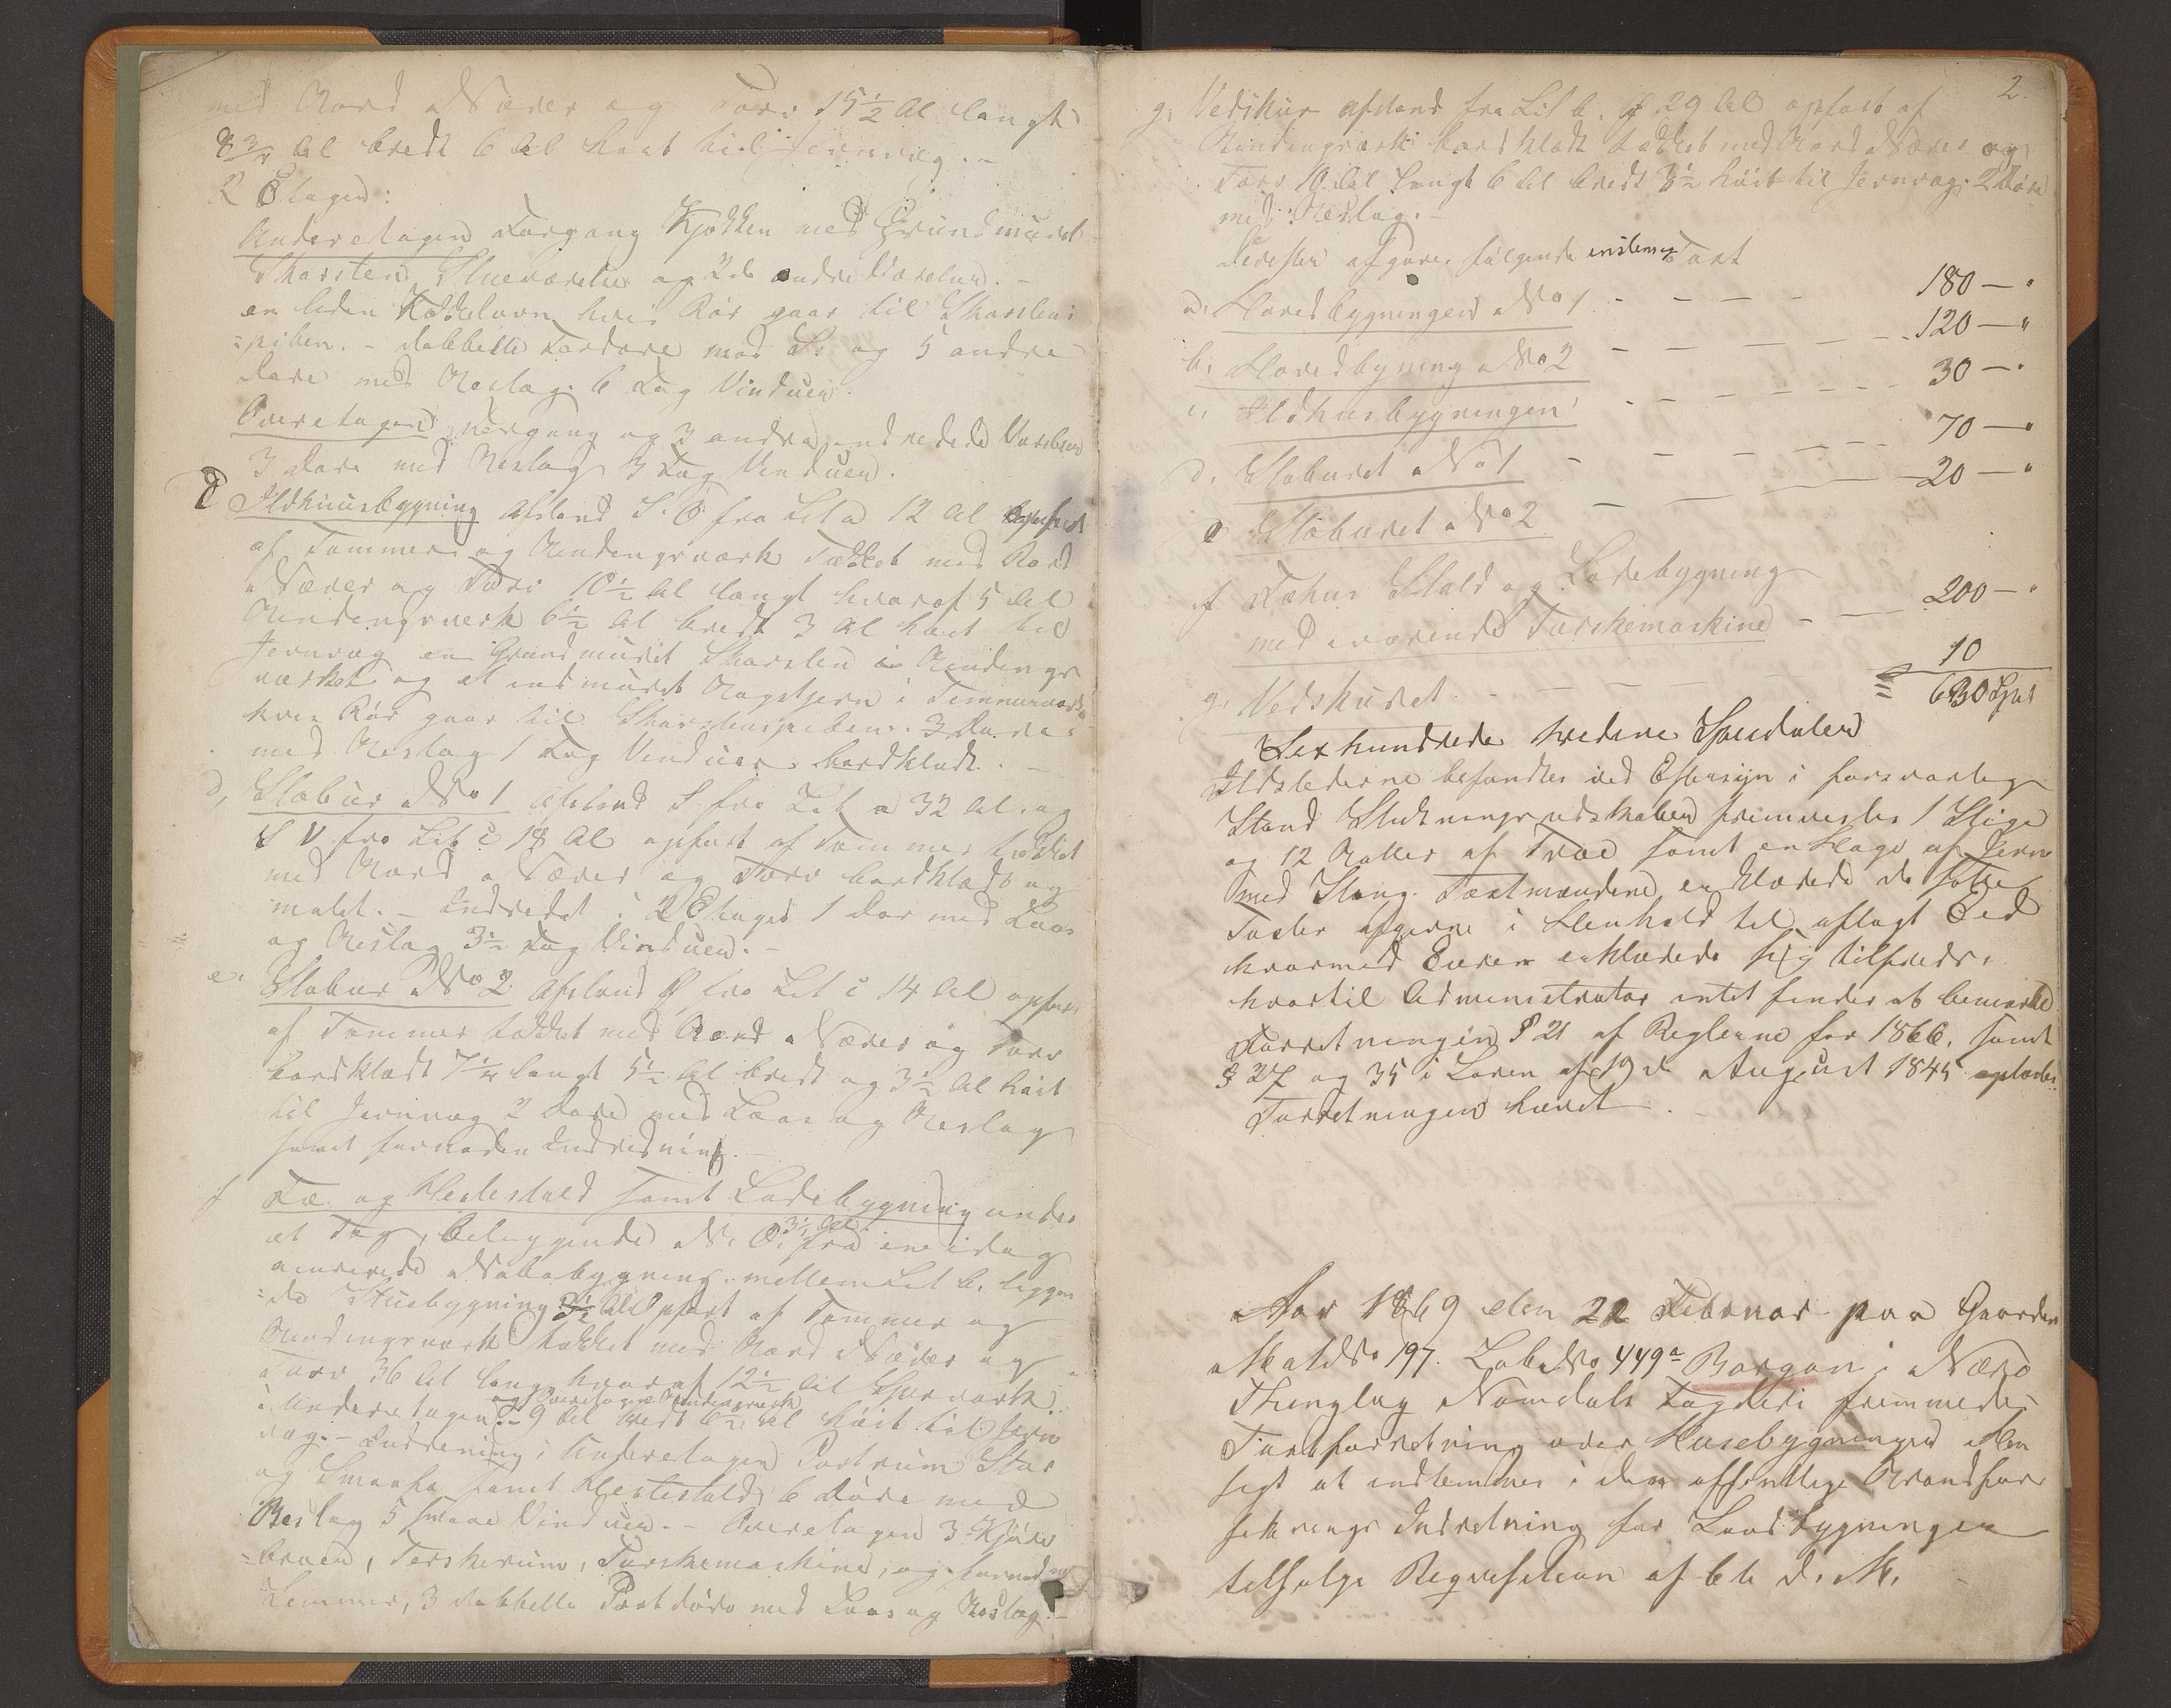 med Bord Næver og Torv 15 1/2 Al langt
8 3/4 Al bredt 6 Al høit til Jernvæg. -
2 Etager:
Underetagen Forgang Kjøkken med Grundmuret
Skorsten, Stueværelse og 2de andre Værelser. -
en liden Kakkelovn hvis Rør gaar til Skorstens
=piben. - dobbelte Fordøre mod S: og 5 andre
Døre med Beslag. 6 Fag Vinduer.
Overetagen, Forgang og 3 andre indredede Værelser
3 Døre med Beslag 3 Fag Vinduer.
c Ildhuusbygning Afstand S. O fra Lit a 12 Al opført
af Tømmer og Bindingsværk Tækket med Bord
Næver og Torv 10 1/2 Al langt hvoraf 5 Al
Bindingsværk 6 1/2 Al bredt 3 Al høit til
Jernvæg en Grundmuret Skorsten i Bindings
værket og et indmuret Bagstjern i Tømmerværket
hvis Rør gaar til Skorstenspiben. 3 Døre
med Beslag 1 Fag Vinduer. bordklædt. -
d, Stabur No 1 Afstand S fra Lit a 32 Al og
S V fra Lit c 18 Al opført af Tømmer tækket
med Bord Næver og Torv bordklædt og
malet. - Indredet i 2 Etager 1 Dør med Laas
og Beslag 3 1/2 Fag Vinduer. -
e. Stabur No 2 Afstand Ø fra Lit c 14 Al opført
af Tømmer tækket med Bord Næver og Torv
bordklædt 7 1/4 langt 5 1/2 Al bredt og 3 1/2 Al høit
til Jernvæg 2 Døre med Laas og Beslag
samt fornøden Indredning. -
f Fæ og Hestestald samt Ladebygning under
et Tag, beliggende N. O. 3 1/2 Al fra en idag
Nabobygning mellem Lit b. liggen
=de Stuebygning 3 1/2 Al Opført af Tømmer og
Bindingsværk tækket med Bord Næver og
Torv 36 Al lang hvoraf 12 1/2 Al
i Underetagen og Overetagen Bindingsværk 9 Al bredt 6 1/2 Al høit til Jern
væg. - Indredning i Underetagen
og Smaafæ samt Hestestald, 6 Døre med
Beslag 5 smaae Vinduer. - Overetagen 3 Kjøre
=broer, Terskerum, Tærskemaskine, og fornødne
Lemmer, 3 dobbelte Portdøre med Laas og Beslag. -
2.
g, Vedskur afstand fra Lit b. 29 Al opført af
Bindingsværk bordklædt tækket med Bord Næver og
Torv 10 Al langt 6 Al bredt 3 1/2 høit til Jernvæg. 2 Døre
med Beslag. -
Derefter afgaves følgende Taxt
a, Hovedbygningen No 1 - - - - 180 - "
b, Hovedbygning No 2 - - - - 120 - "
c, Ildhusbygningen - - - - 30 - "
d, Staburet No 1 - - - - 70 - "
e Staburet No 2 - - - - 20 - "
f Fæhus Stald og Ladebygning
med iværende Tærskemaskine - - 200 - "
g, Vedskuret - - - - 10
= 630 Spd
Sex hundrede tredive Speciedaler
Ildstederne befandtes ved Eftersyn i forsvarlig
Stand Slukningsredskaber fremvistes 1 Stige
og 12 Bøtter af Træ samt en Hage af Jern
med Stang. Taxtmændene erklærede de satte
Taxter afgivne i Henhold til aflagt Eed
hvormed Eieren erklærede sig tilfreds,
hvortil Administrator intet finder at bemærke
Forretningen § 21 af Reglerne for 1866, samt
§ 27 og 35 i Loven af 19de August 1845 oplæstes.
Forretningen hævet. -
Aar 1869 den 22 Februar paa Gaarden
Matr No 197. Løbe No 449a Borgan i Nærø
Thinglag Namdals Fogderi fremmedes
Taxtforretning over Husebygningerne
sigt at indlemmes i den offentlige Brandfor
sikrings Indretning for Landbygninger
tilfølge Requisition af 6te d. M. -